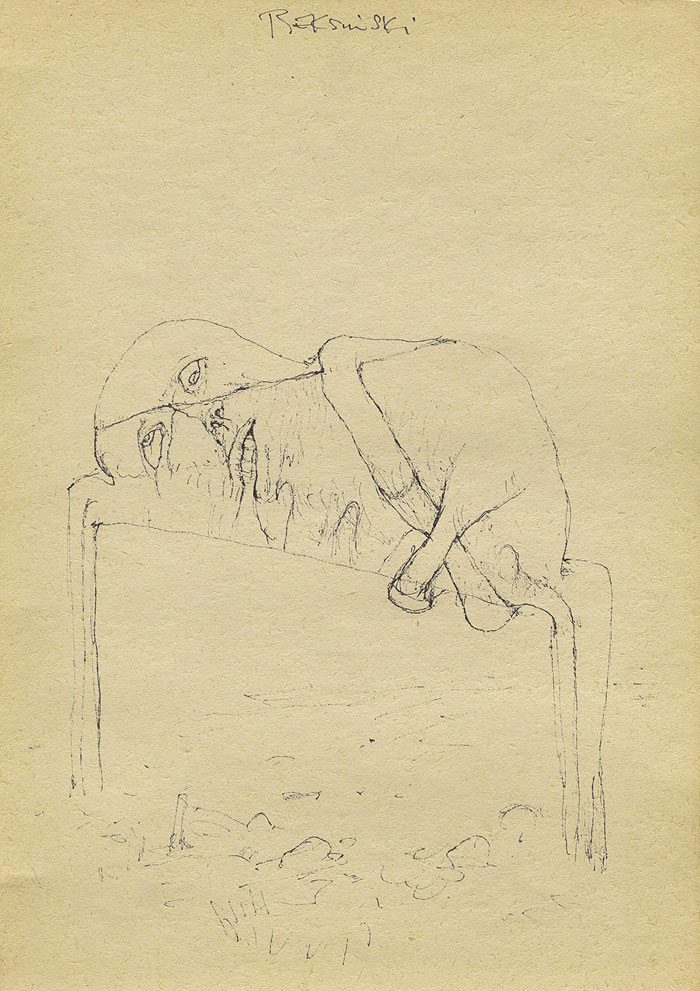 Beksiński